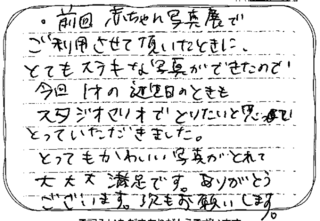 ・前回 赤ちゃん写真展で
ご利用させて頂いたときに、
とてもステキな写真ができたので
今回 1才の 誕生日のときも
スタジオマリオでとりたいと思って
とっていただきました。
とってもかわいい写真がとれて
大大大 満足です。ありがとう
ございます。次もお願いします。